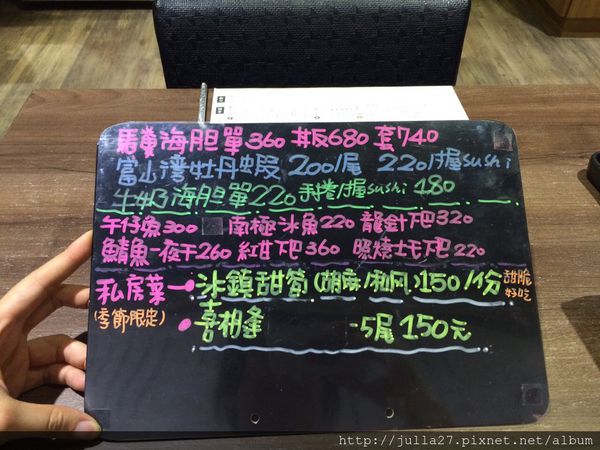 馬糞海胆單360 丼反680 套740
富山灣牡丹蝦 200/尾 220/握sushi
海胆單220 手卷/握sushi 180
午仔魚300 南極冰魚220 龍針下巴320
鯖魚一夜干260 紅甘下巴360 照燒士毛下巴220
私房菜 冰鎮甜筍(胡麻/和风)150/份 甜脆好吃
(季節限定) 喜相逢 -5尾150元
http://julla27.pixnet.net/album